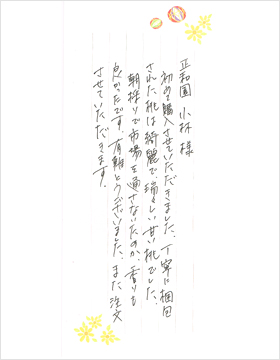 正和園 小林 様
初めて購入させていただきました。丁寧に梱包
された桃は綺麗で、瑞々しい甘い桃でした。
朝採りで市場を通さないためか、香りも
良かったです。有難とうございました。また、注文
させていただきます。